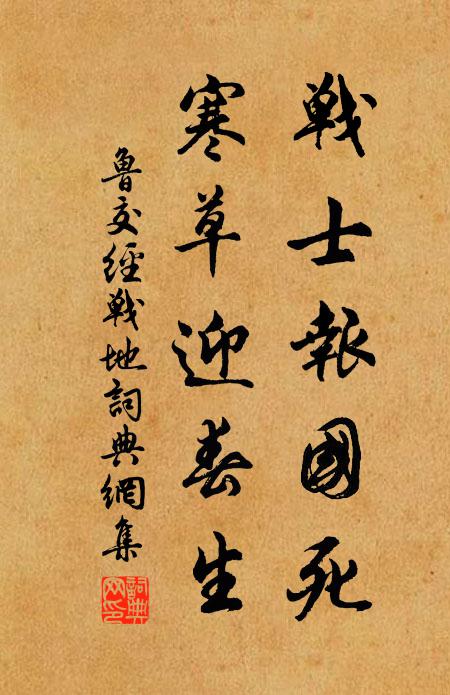 戰士報國死
寒草迎春生
魯交經戰地詞典網集
詞典网印